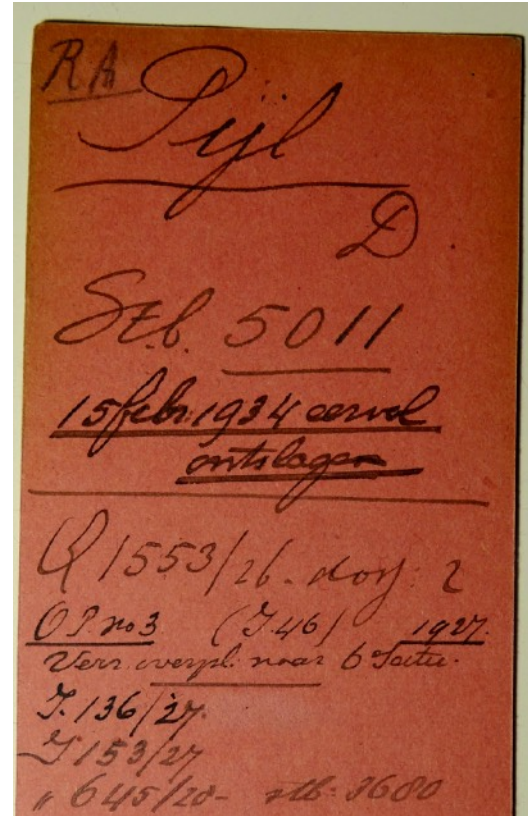 RA
Pijl
D.
Stb. 5011
15 febr. 1934 eervol
ontslagen
Q 1553/26. dos: 2
O.P. no 3 (J.46) 1927.
Verz. overpl. naar 6 Sectie.
J. 136/27.
J 153/27
" 645/28 - stb. 3680